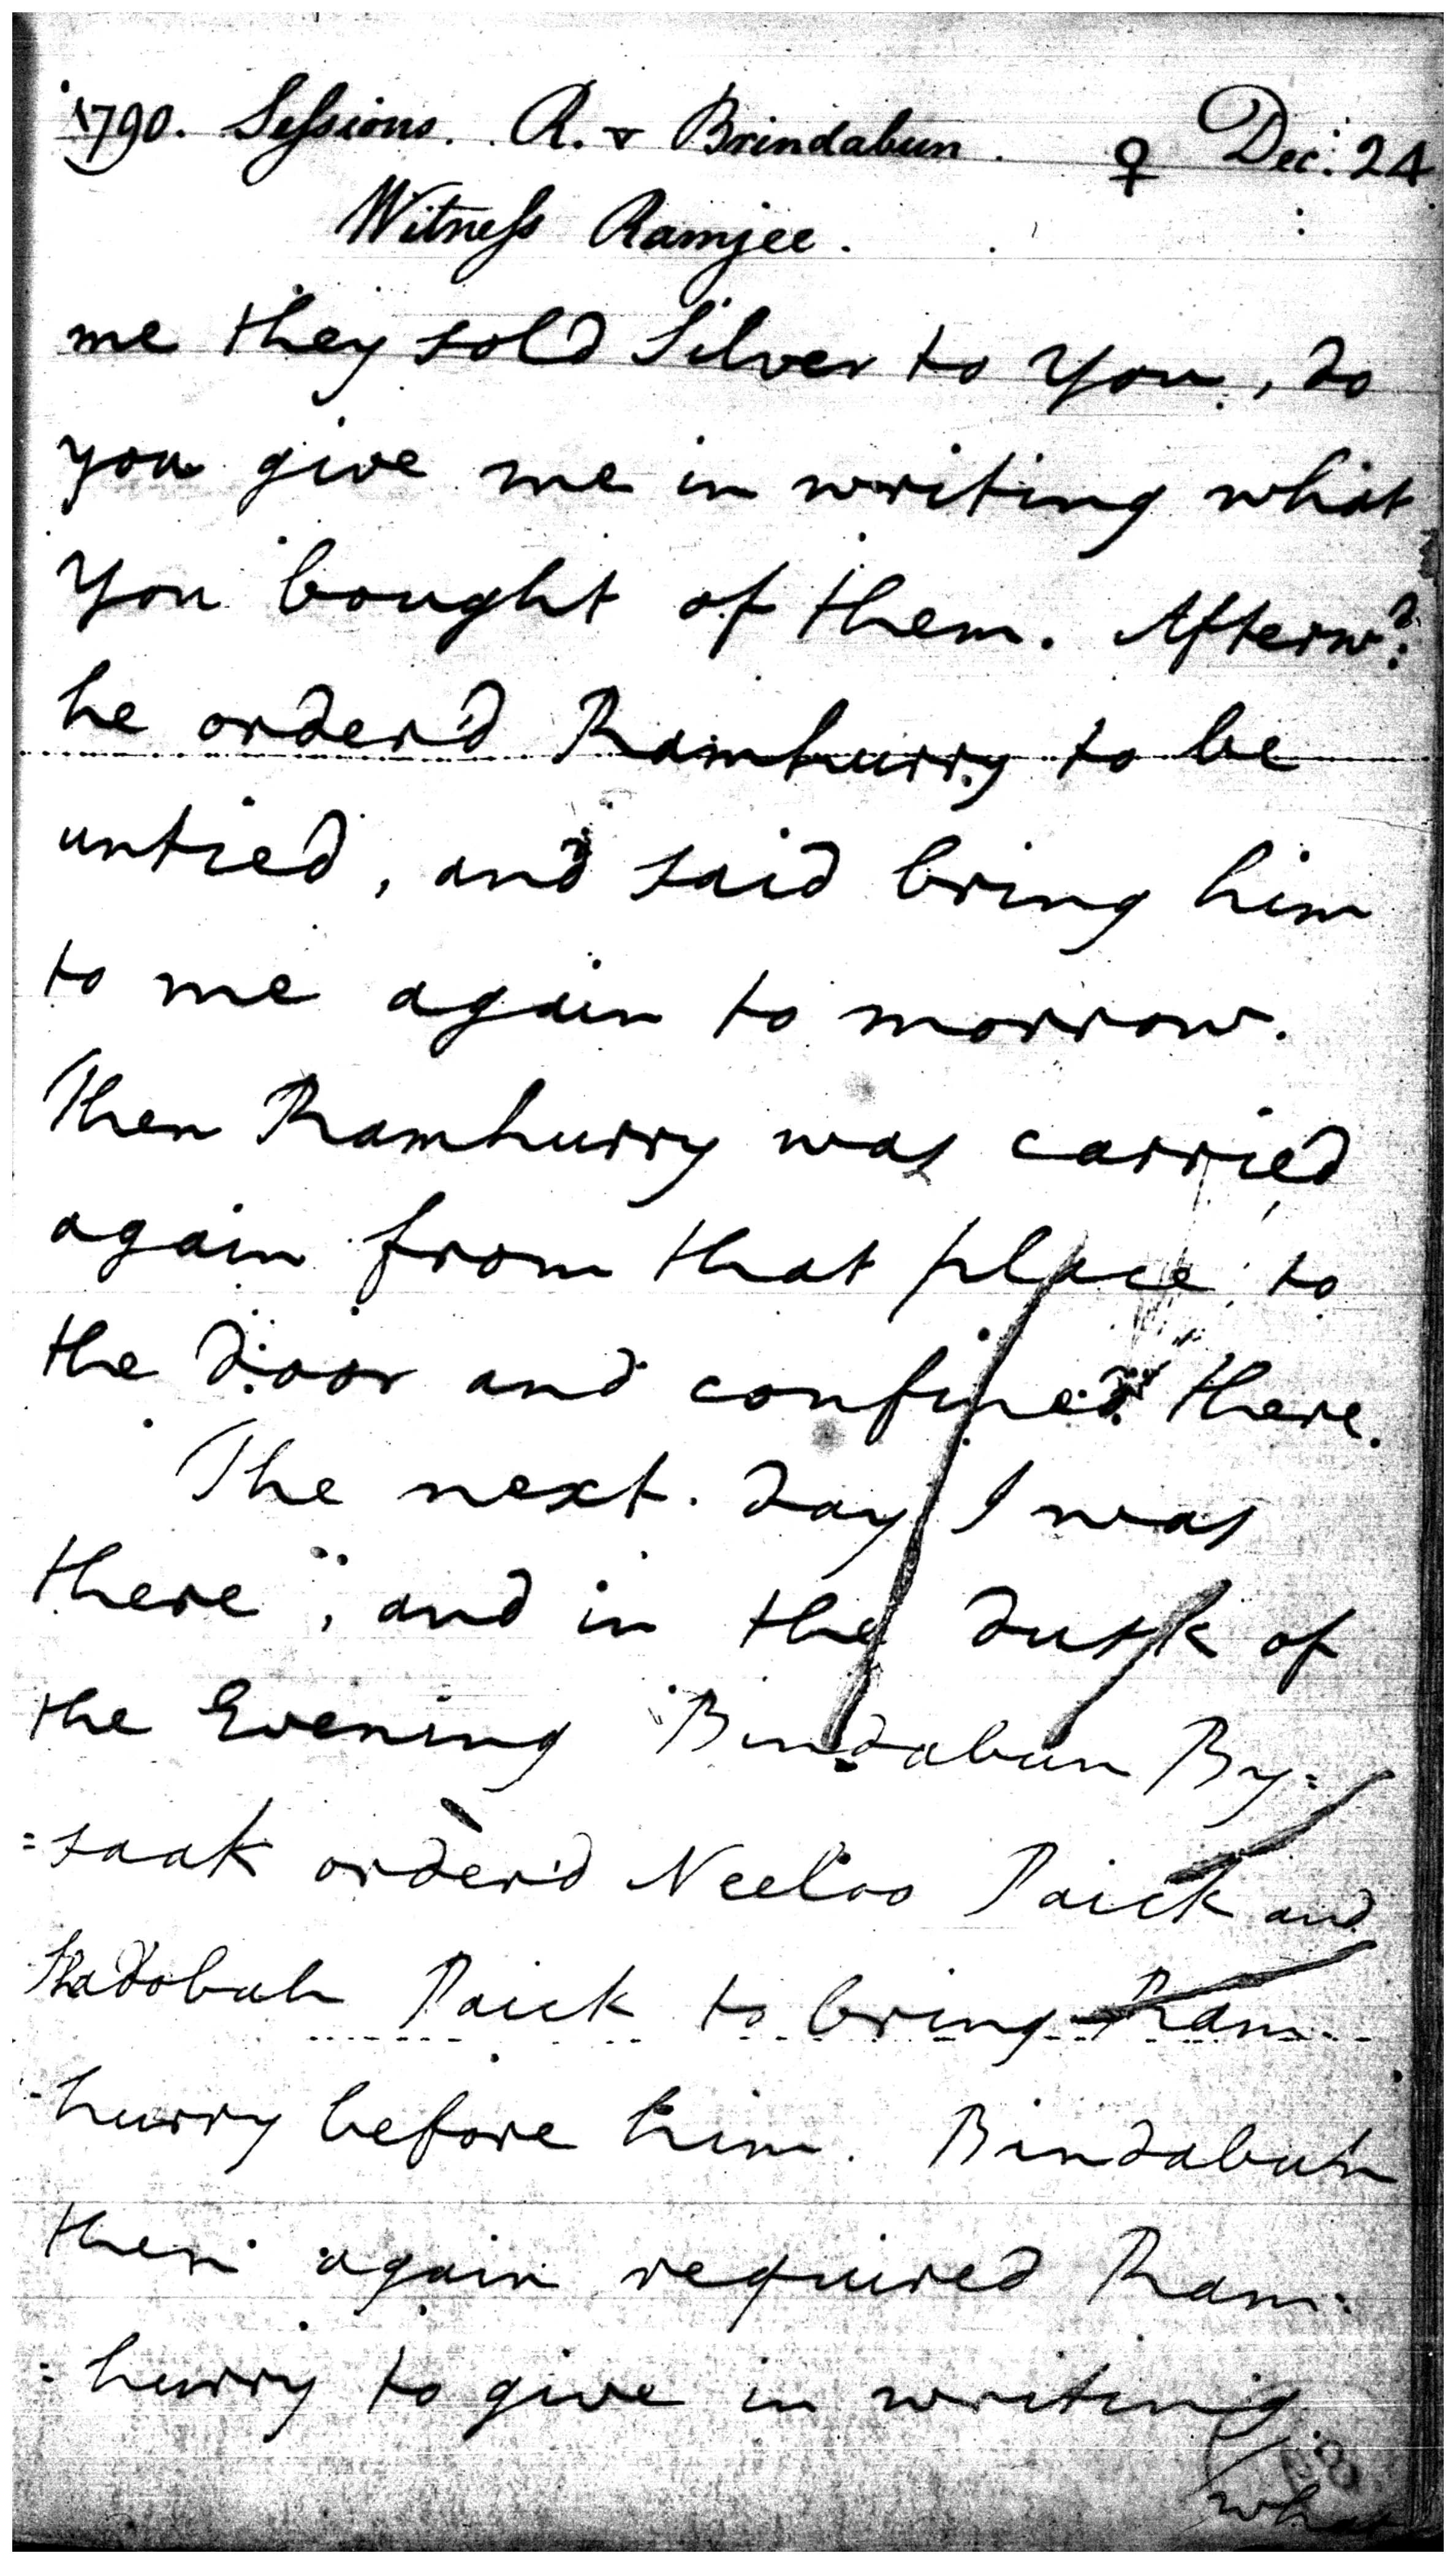 1790. Sessions. R. v Brindabun. ♀ Dec: 24
Witness Ramjee.
me they sold Silver to You, do
you give me in writing what
You bought of them. Afterwd:
he order'd Ramhurry to be
untied, and said bring him
to me again to morrow.
Then Ramhurry was carried
again from that place to
the door and confined there.
The next day I was
there, and in the dusk of
the Evening Bindabun By=
=saak order'd Neeloo Paick and
Paick to bring Ram-
-hurry before him. Bindabun
then again required Ram=
=hurry to give in writing
what